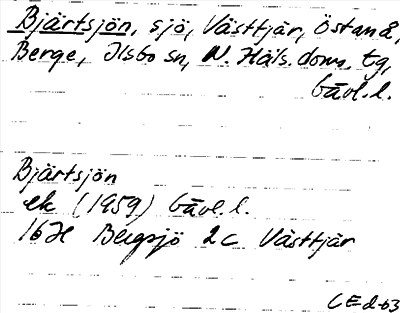 Bjärtsjön, sjö, Västtjär, Östanå,
Berge, Ilsbo sn, N. Häls. doms. tg,
Gävl. l.
Bjärtsjön
ek (1959) Gävl. l.
16H Bergsjö 2c Västtjär
CEd-63